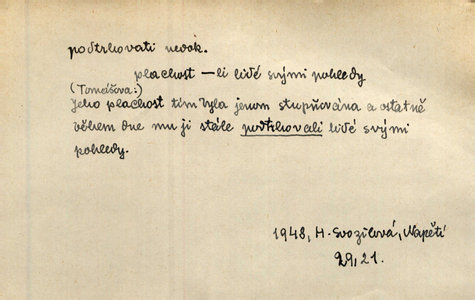 podtrhovati nedok.
plachost – li lidé svými pohledy
(Tomášova:)
Jeho plachost tím byla jenom stupňována a ostatně
během dne mu ji stále podtrhovali lidé svými
pohledy.
1948, H. Svozilová, Napětí
29, 21.